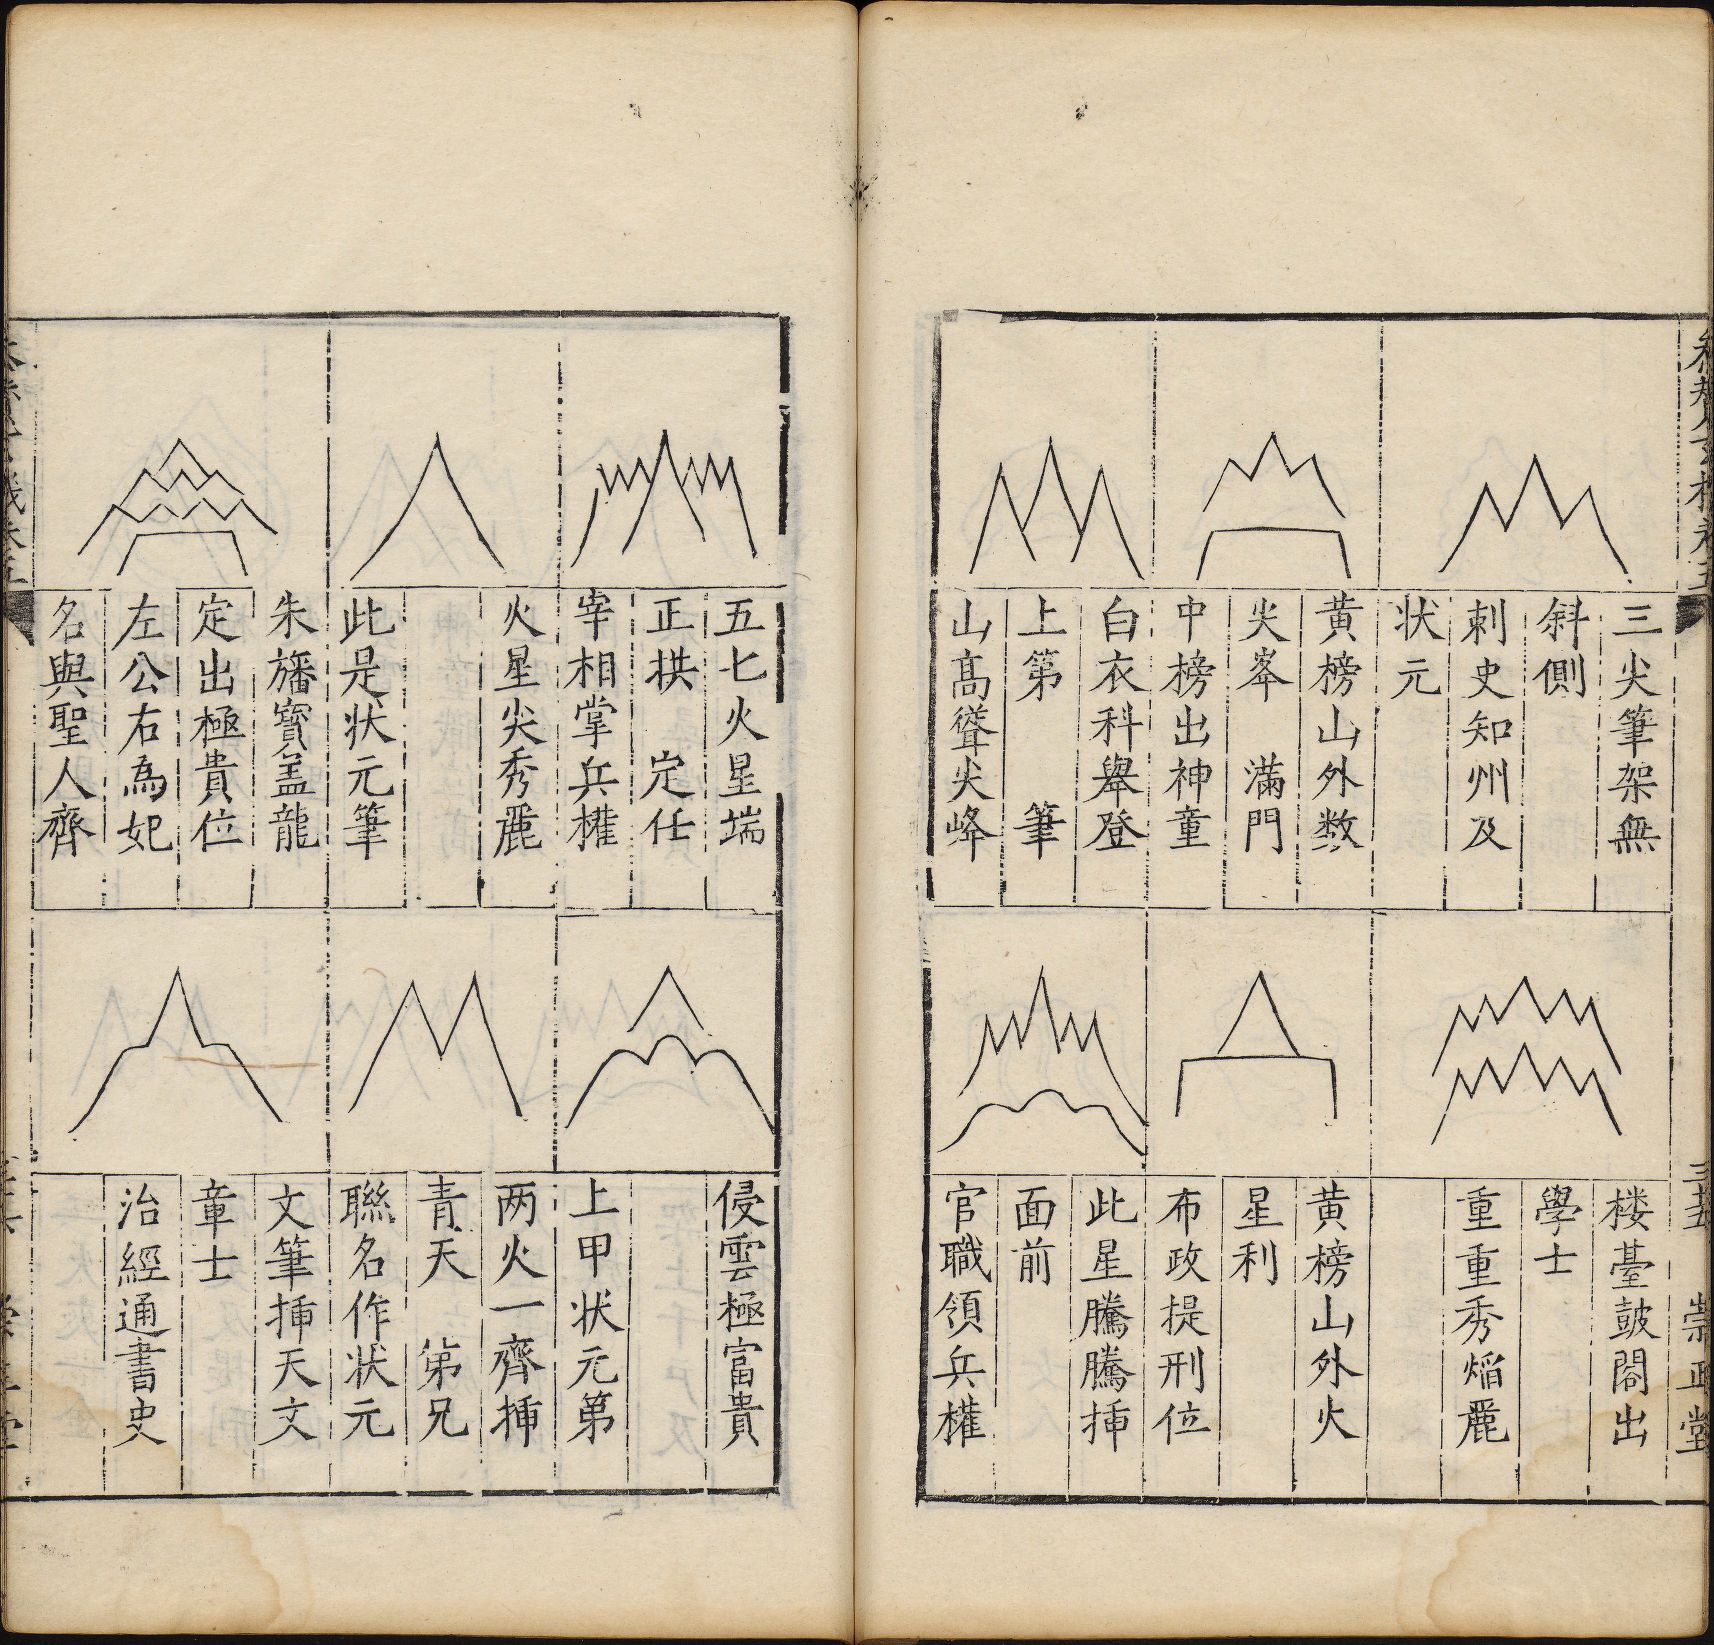 三尖筆架無
斜側
刺史知州及
状元
黄榜山外数
尖峯　滿門
中榜出神童
白衣科舉登
上第　筆
山髙聳尖峰
楼臺皷閣出
學士
重重秀熖麗
黄榜山外火
星利
布政提刑位
此星騰騰挿
面前
官職領兵權
三五　崇正堂
五七火星端
正拱　定任
宰相掌兵權
火星尖秀麗
此是状元筆
朱旛寳盖龍
定出極貴位
左公右為妃
名與聖人齊
侵雲極富貴
上甲状元第
两火一齊挿
青天　弟兄
聯名作状元
文筆挿天文
章士
治經通書史